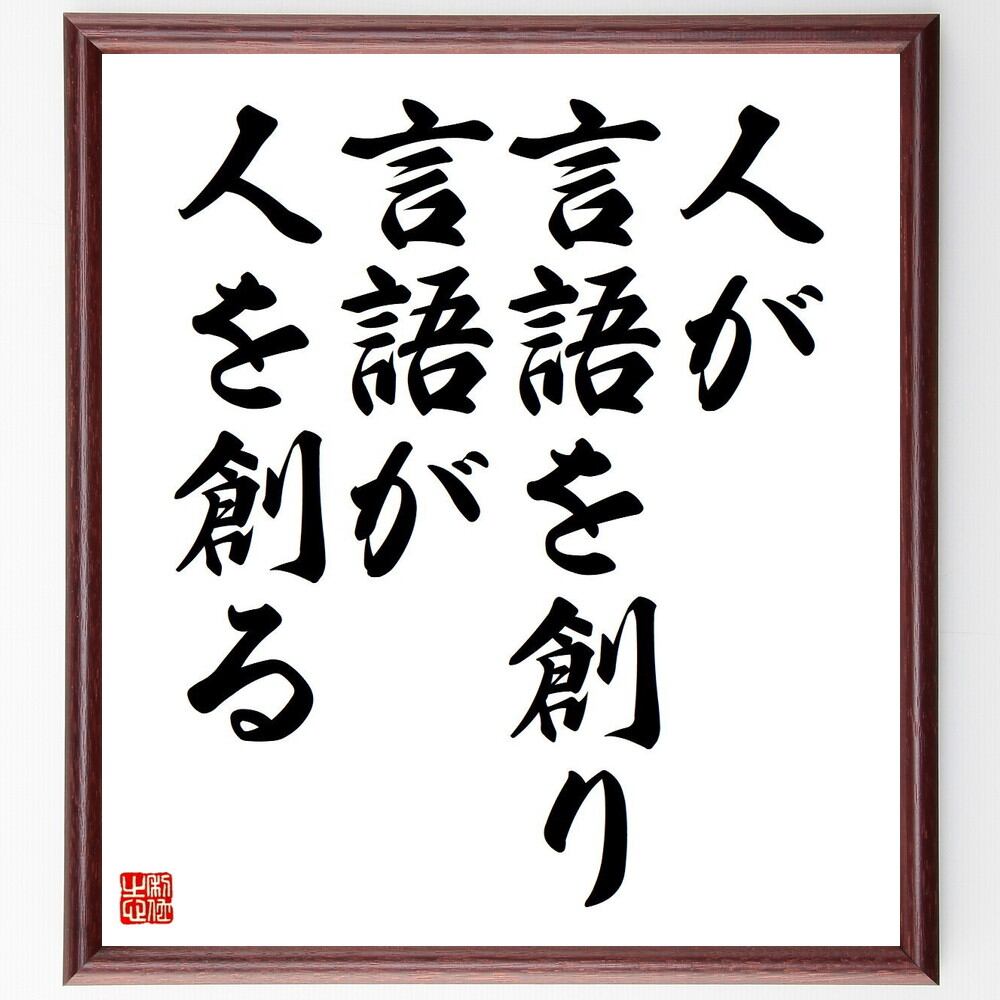 人が
言語を創り
言語が
人を創る